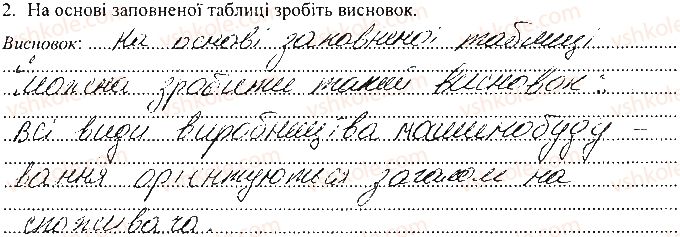 2. На основі заповненої таблиці зробіть висновок.
Висновок: На основі заповненої таблиці
можна зробити такий висновок:
всі види виробництва машинобуду-
вання орієнтуються загалом на
споживача.